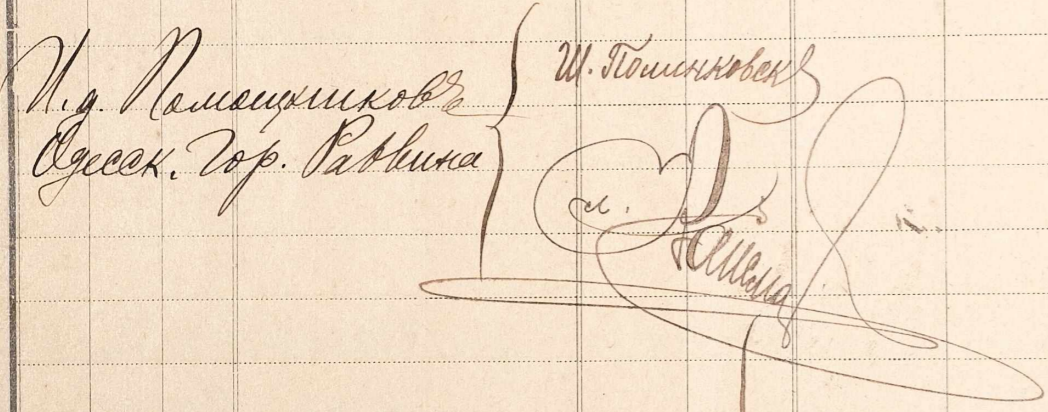 И. д. Помощниковъ
Одесск. Гор. Раввина
Ш. Полинковск